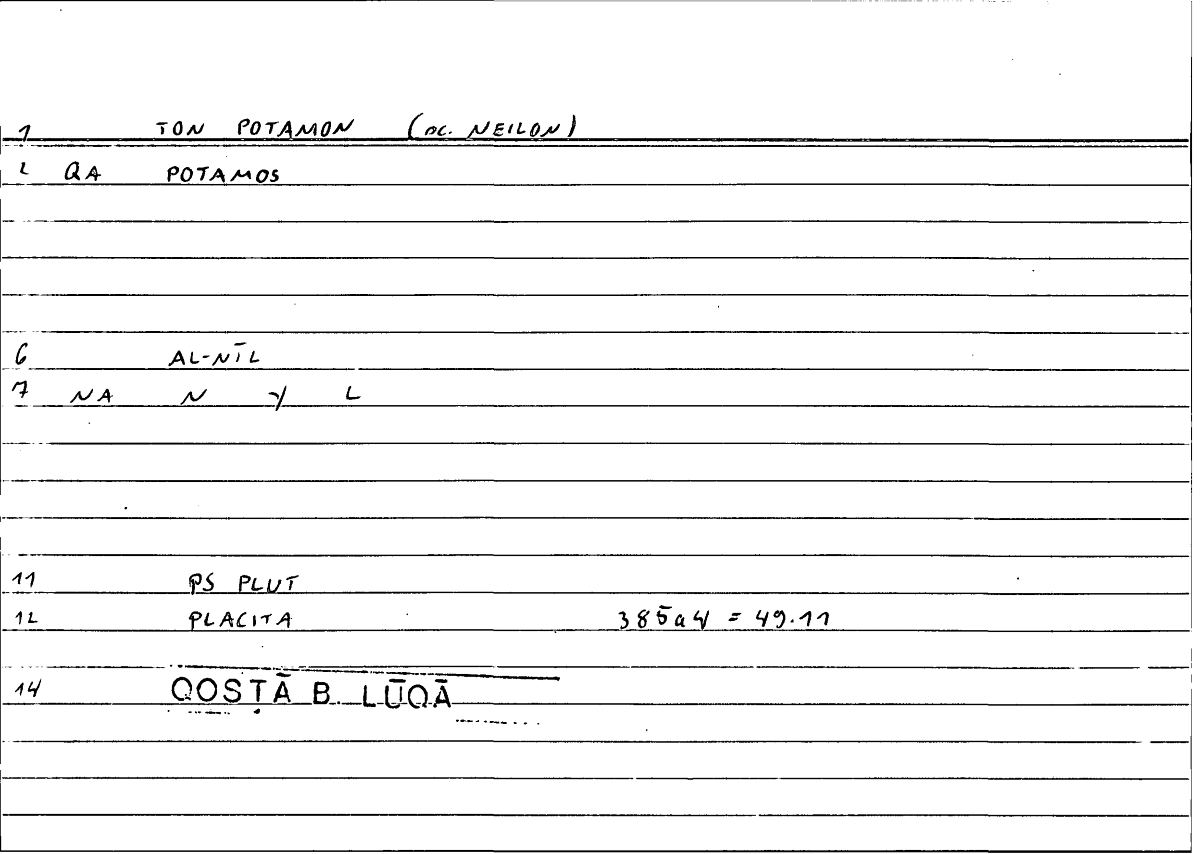 1 TON POTAMON (sc. NEILON)
2 QA POTAMOS
6 AL-NĪL
7 NA N Y L
11 PS PLUT
12 PLACITA 385a4 = 49.11
14 QOSṬĀ B. LŪQĀ